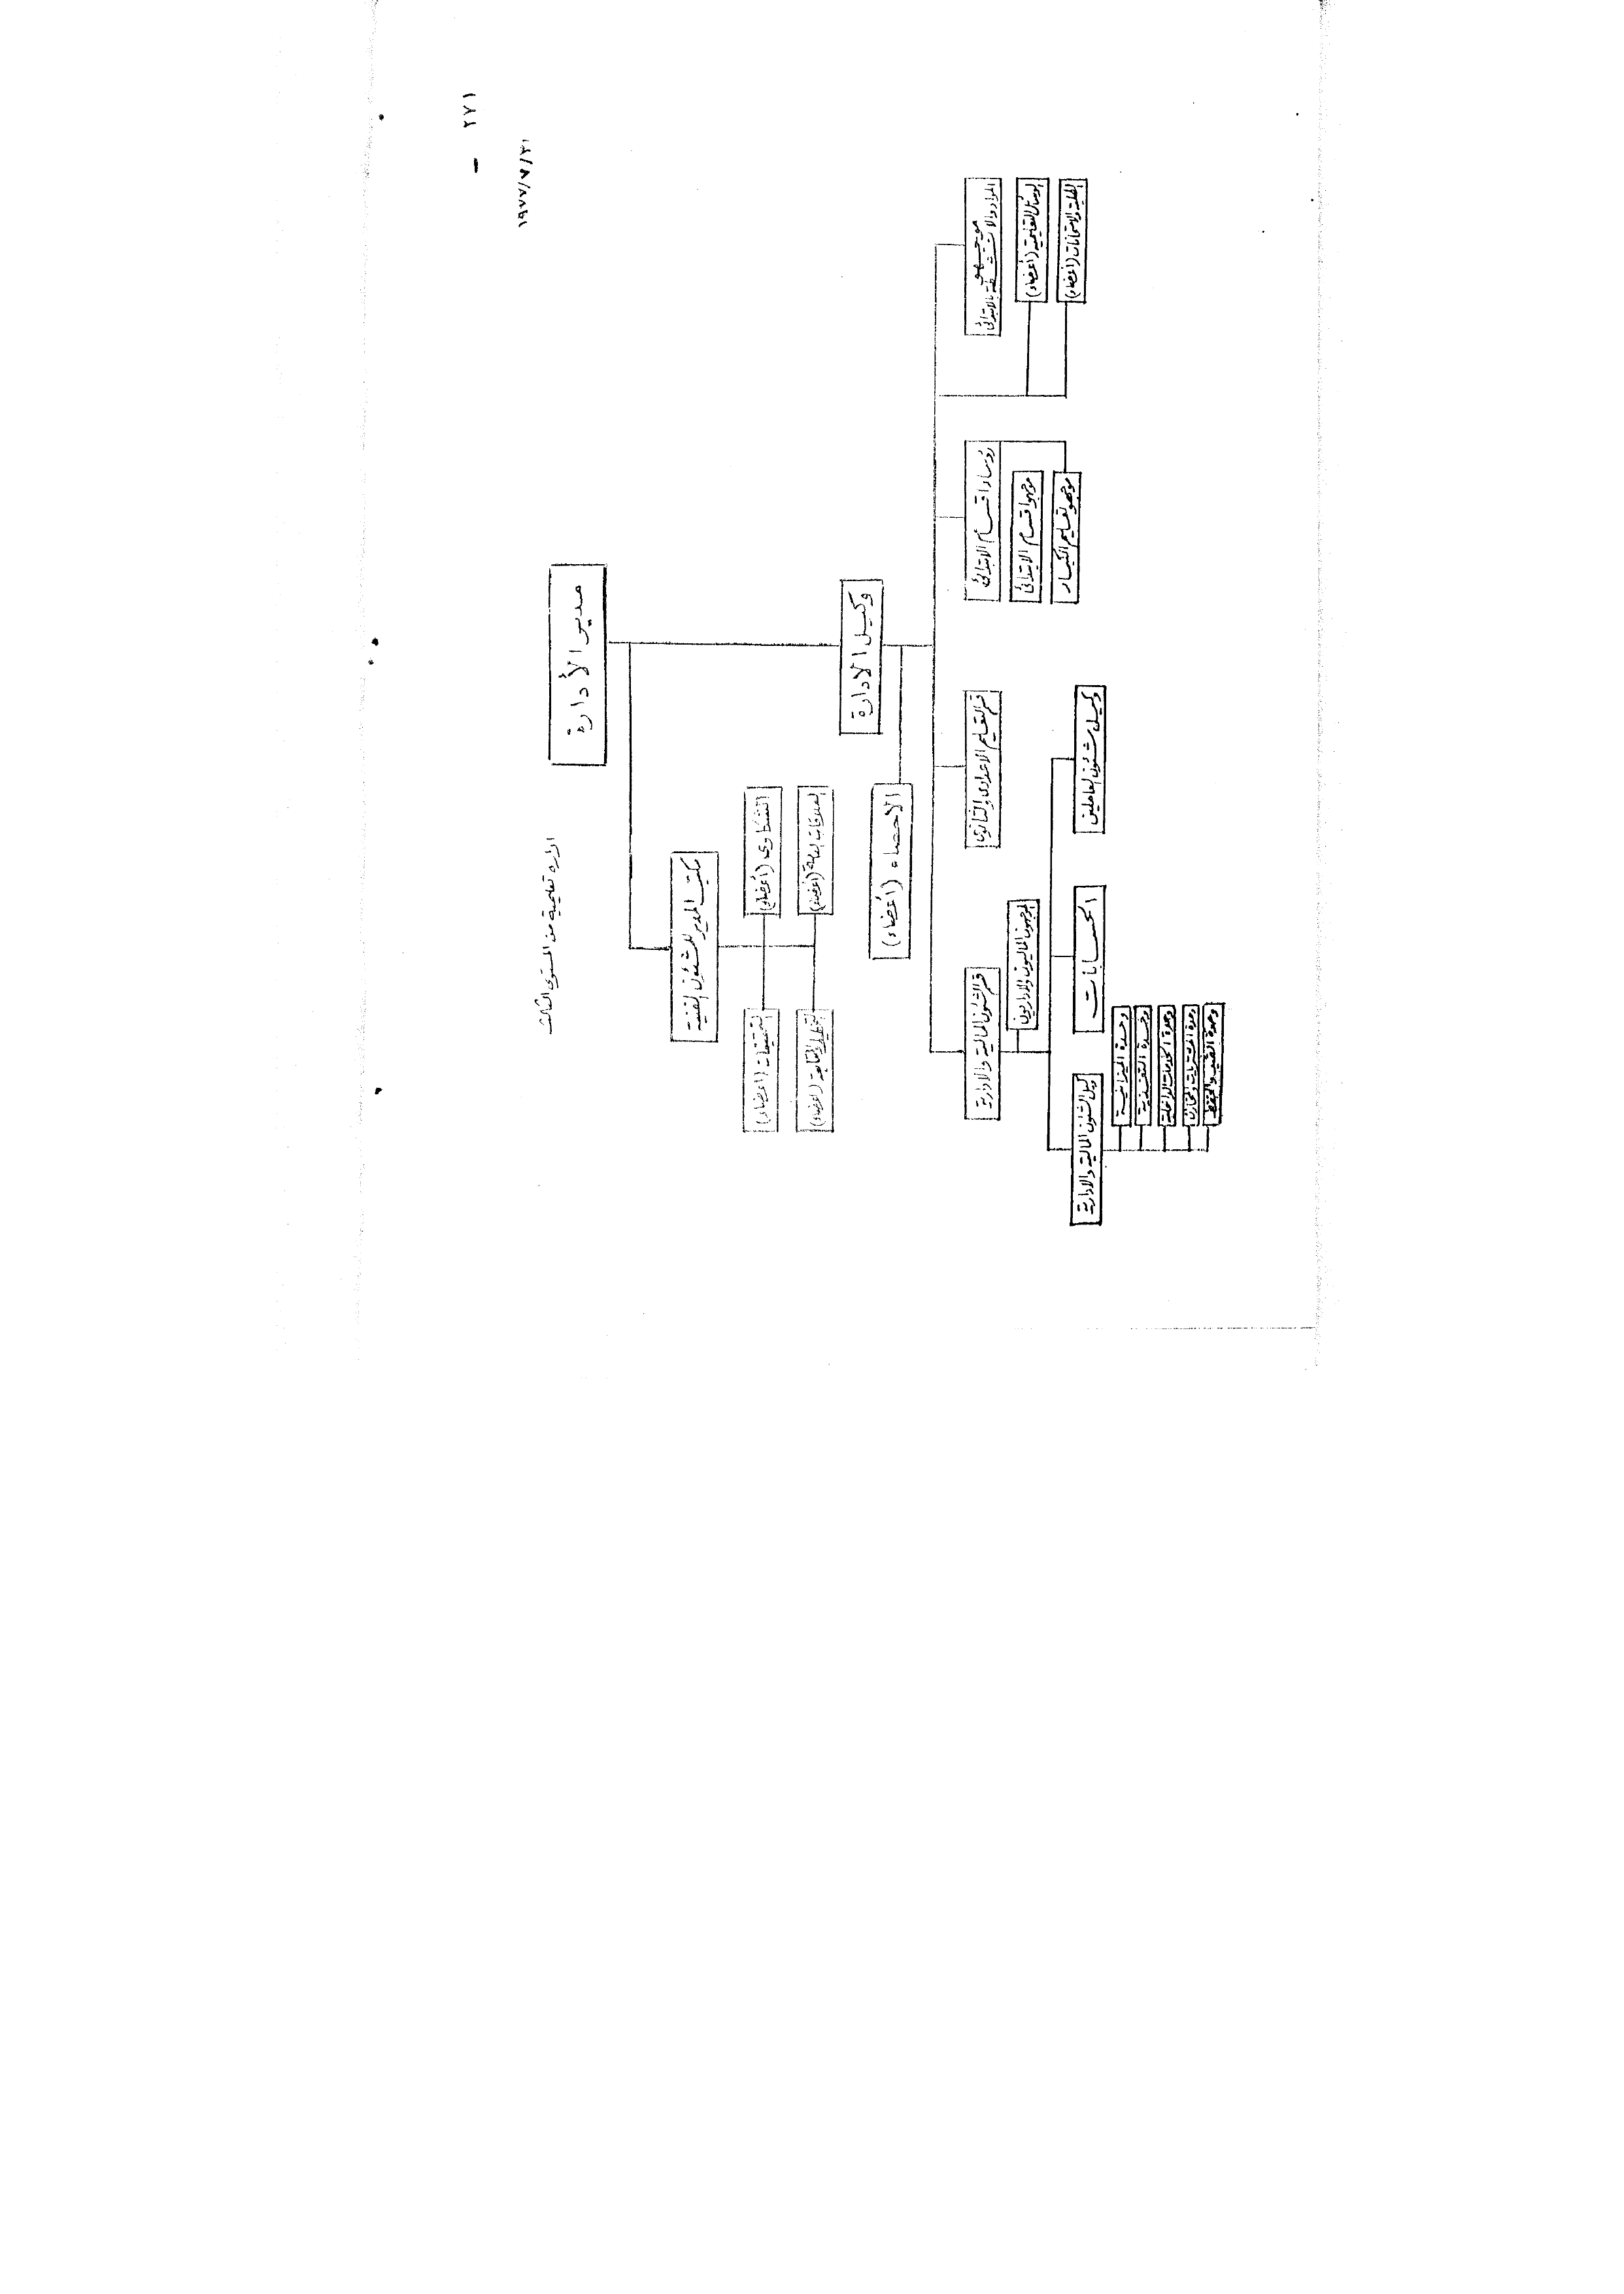 ٢٧١ -
١٩٧٧/٧/٣١
ادارة تعليمية من المستوى الثالث
مدير الأدارة
مكتب المدير للشئون الفنية
الشكاوى (أعضاء)
التحقيقات (أعضاء)
العلاقات العامة (أعضاء)
التخطيط والمتابعة (أعضاء)
وكيل الادارة
الاحصاء (أعضاء)
موجهو
المواد والانشطة بالابتدائى
الوسائل التعليمية (أعضاء)
الطلبة والامتحانات (أعضاء)
رؤساء اقسام الابتدائى
موجهوا قسم الابتدائى
موجهو تعليم الكبار
قسم التعليم الاعدادى والثانوى
قسم الشئون المالية والادارية
الموجهون الماليون والاداريون
وكيل شئون العاملين
الحسابات
وكيل الشئون المالية والادارية
وحدة الميزانية
وحدة التغذية
وحدة الخدمات الداخلية
وحدة المشتريات والمخازن